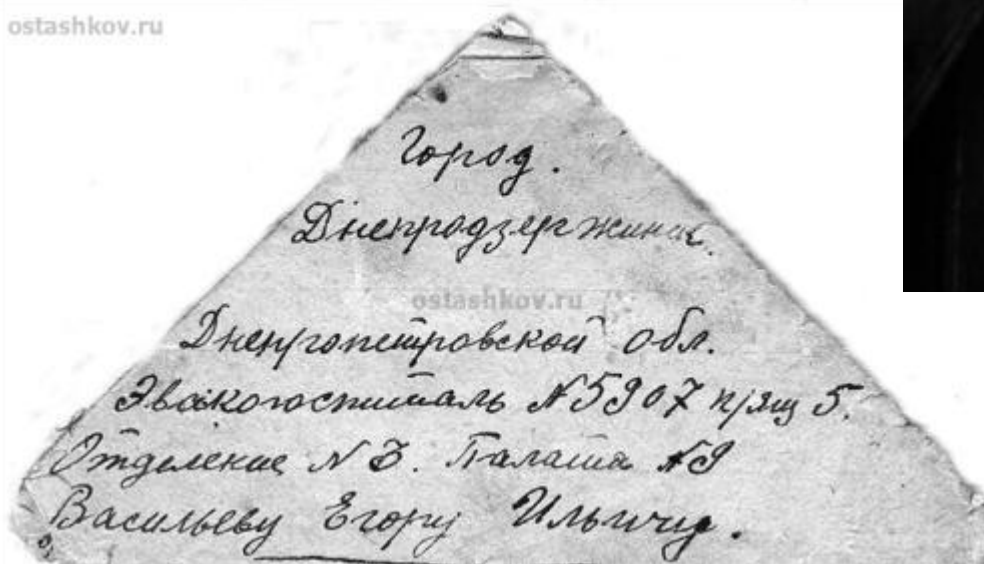 ostashkov.ru
Город.
Днепродзержинск.
ostashkov.ru
Днепропетровской обл.
Эвакогоспиталь №5907 п/ящ 5.
Отделение №3. Палата №9
Васильеву Егору Ильичу.